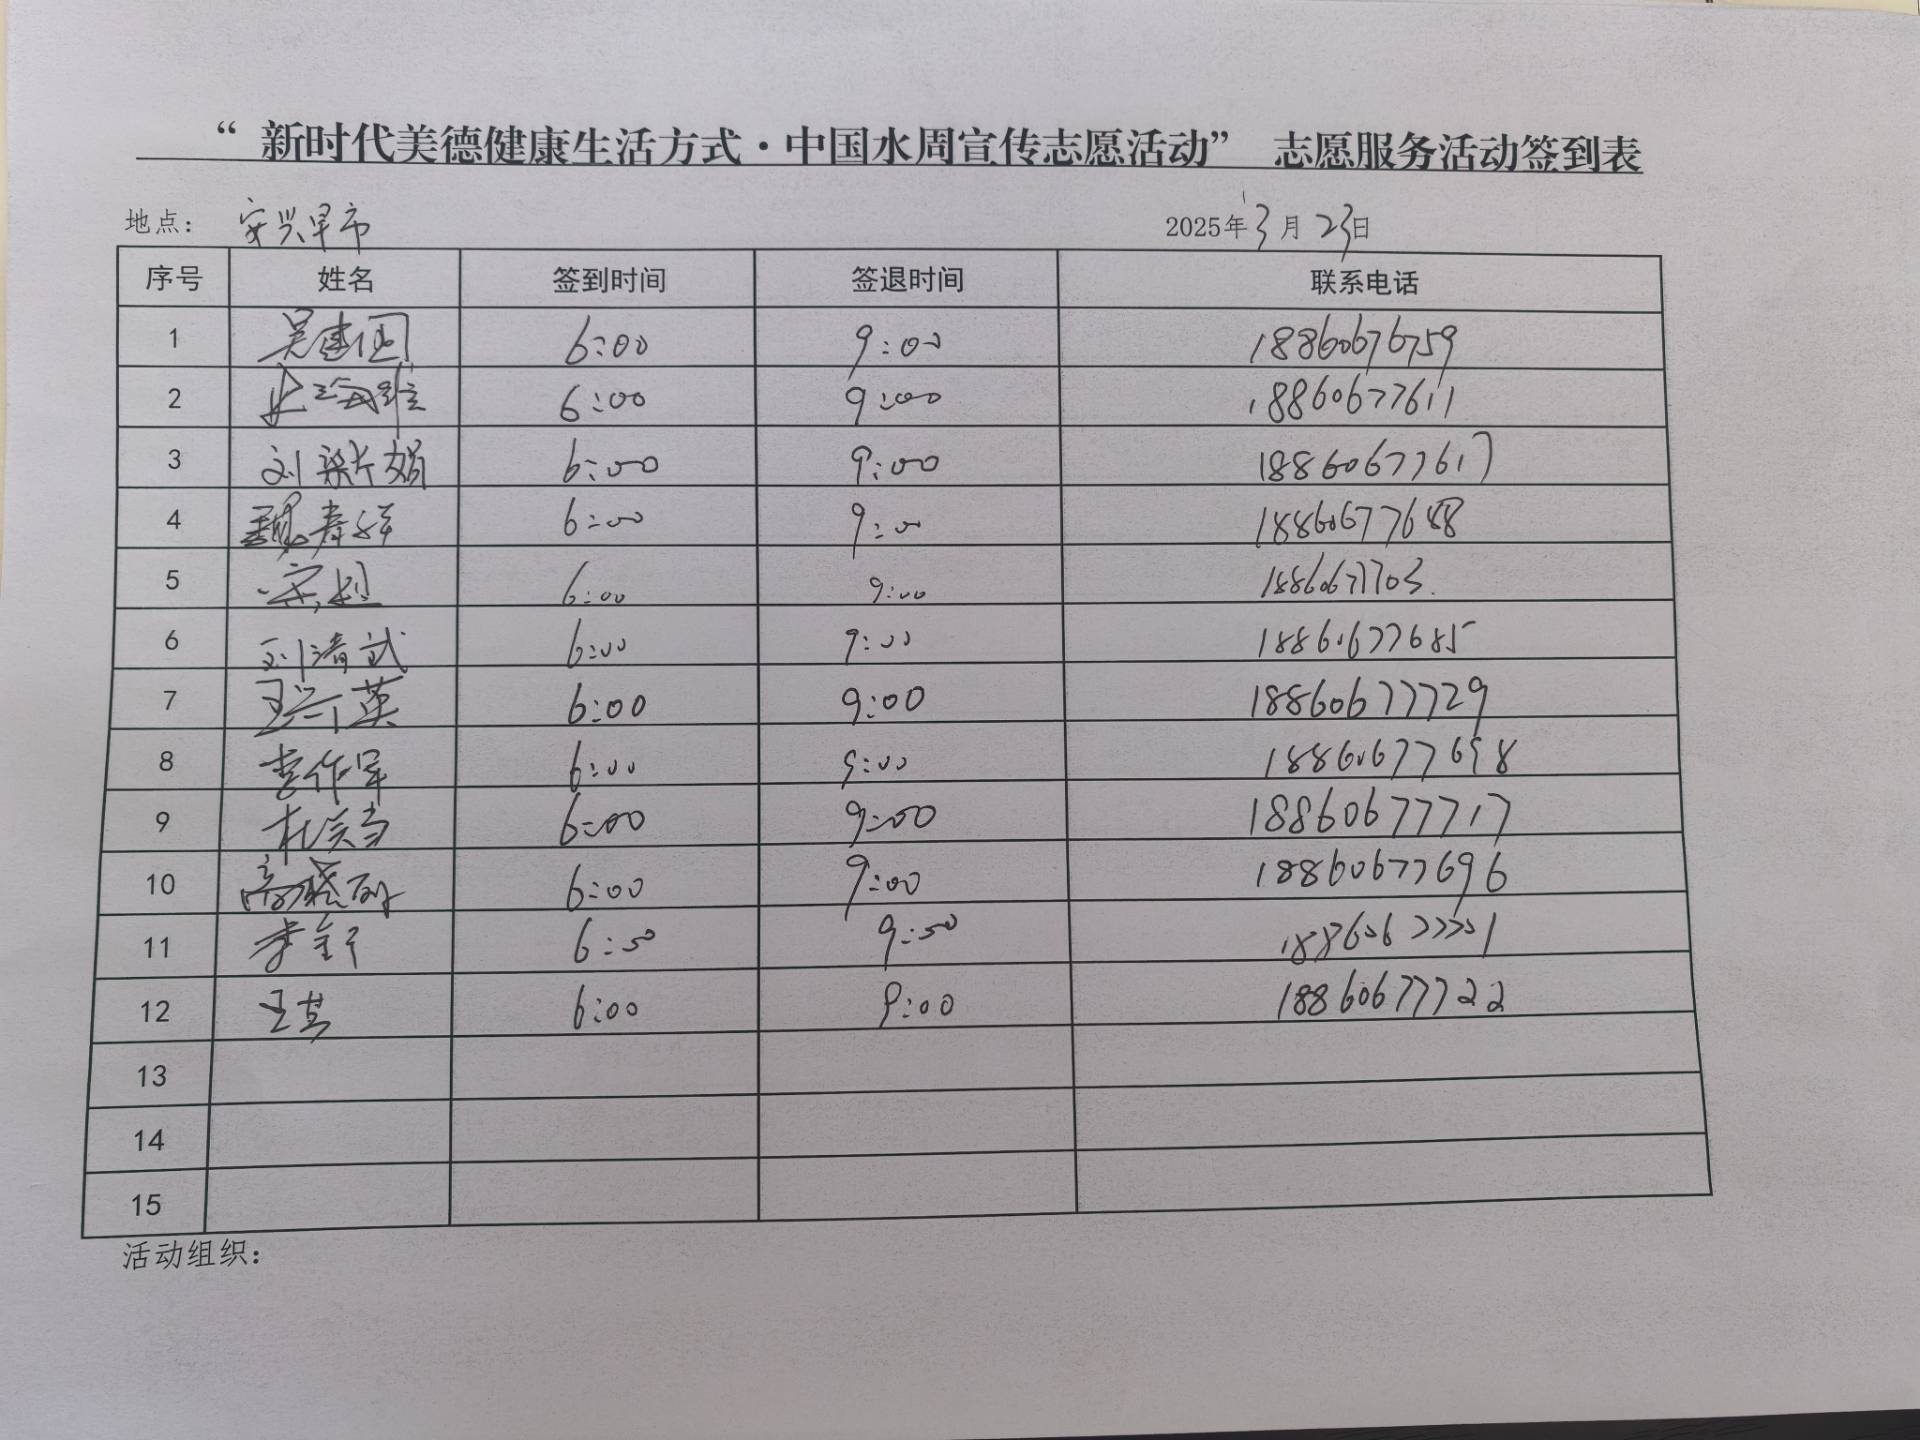 “ 新时代美德健康生活方式·中国水周宣传志愿活动” 志愿服务活动签到表
地点： 安兴早市 2025年3月23日
序号 姓名 签到时间 签退时间 联系电话
1 吴建国 6:00 9:00 18860676759
2 6:00 9:00 18860677611
3 刘 娟 6:00 9:00 18860677617
4 魏春祥 6:00 9:00 18860677688
5 宋超 6:00 9:00 18860677703
6 刘清武 6:00 9:00 18860677685
7 王兴英 6:00 9:00 18860677729
8 李作军 6:00 9:00 18860677698
9 杜 6:00 9:00 18860677717
10 高 6:00 9:00 18860677696
11 李 6:00 9:00
12 王其 6:00 9:00 18860677722
13
14
15
活动组织：